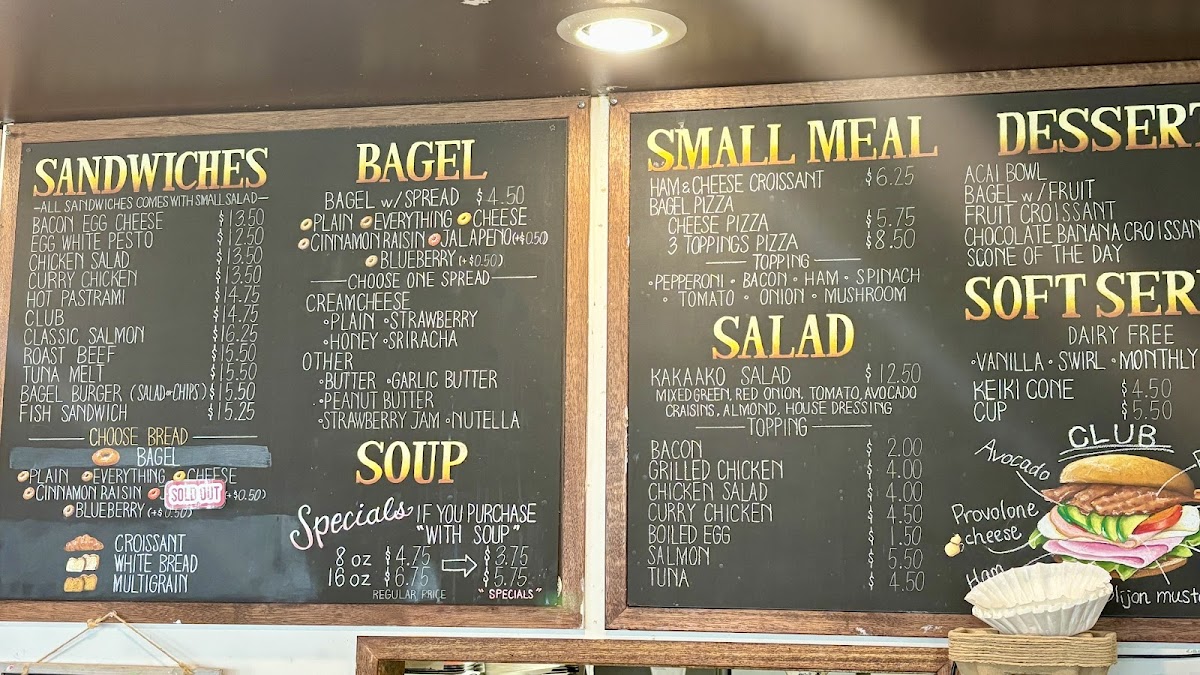 SANDWICHES
-ALL SANDWICHES COMES WITH SMALL SALAD-
BACON EGG CHEESE $13.50
EGG WHITE PESTO $12.50
CHICKEN SALAD $13.50
CURRY CHICKEN $13.50
HOT PASTRAMI $14.75
CLUB $14.75
CLASSIC SALMON $16.25
ROAST BEEF $15.50
TUNA MELT $15.50
BAGEL BURGER (SALAD or CHIPS) $15.50
FISH SANDWICH $15.25
CHOOSE BREAD
BAGEL
PLAIN EVERYTHING CHEESE
CINNAMON RAISIN SOLD OUT (+$0.50)
BLUEBERRY (+$0.50)
CROISSANT
WHITE BREAD
MULTIGRAIN
BAGEL
BAGEL w/ SPREAD $4.50
PLAIN EVERYTHING CHEESE
CINNAMON RAISIN JALAPENO (+$0.50)
BLUEBERRY (+$0.50)
CHOOSE ONE SPREAD
CREAMCHEESE
•PLAIN •STRAWBERRY
•HONEY •SRIRACHA
OTHER
•BUTTER •GARLIC BUTTER
•PEANUT BUTTER
•STRAWBERRY JAM •NUTELLA
SOUP
Specials IF YOU PURCHASE
"WITH SOUP"
8 oz $4.75 → $3.75
16 oz $6.75 $5.75
REGULAR PRICE "SPECIALS"
SMALL MEAL
HAM & CHEESE CROISSANT $6.25
BAGEL PIZZA
CHEESE PIZZA $5.75
3 TOPPINGS PIZZA $8.50
TOPPING
•PEPPERONI • BACON • HAM • SPINACH
• TOMATO • ONION • MUSHROOM
SALAD
KAKAAKO SALAD $12.50
MIXED GREEN, RED ONION, TOMATO, AVOCADO
CRAISINS, ALMOND, HOUSE DRESSING
TOPPING
BACON $2.00
GRILLED CHICKEN $4.00
CHICKEN SALAD $4.00
CURRY CHICKEN $4.50
BOILED EGG $1.50
SALMON $5.50
TUNA $4.50
DESSERT
ACAI BOWL
BAGEL w/ FRUIT
FRUIT CROISSANT
CHOCOLATE BANANA CROISSAN
SCONE OF THE DAY
SOFT SER
DAIRY FREE
•VANILLA • SWIRL • MONTHLY
KEIKI CONE $4.50
CUP $5.50
CLUB
Avocado
Provolone
cheese
Ham